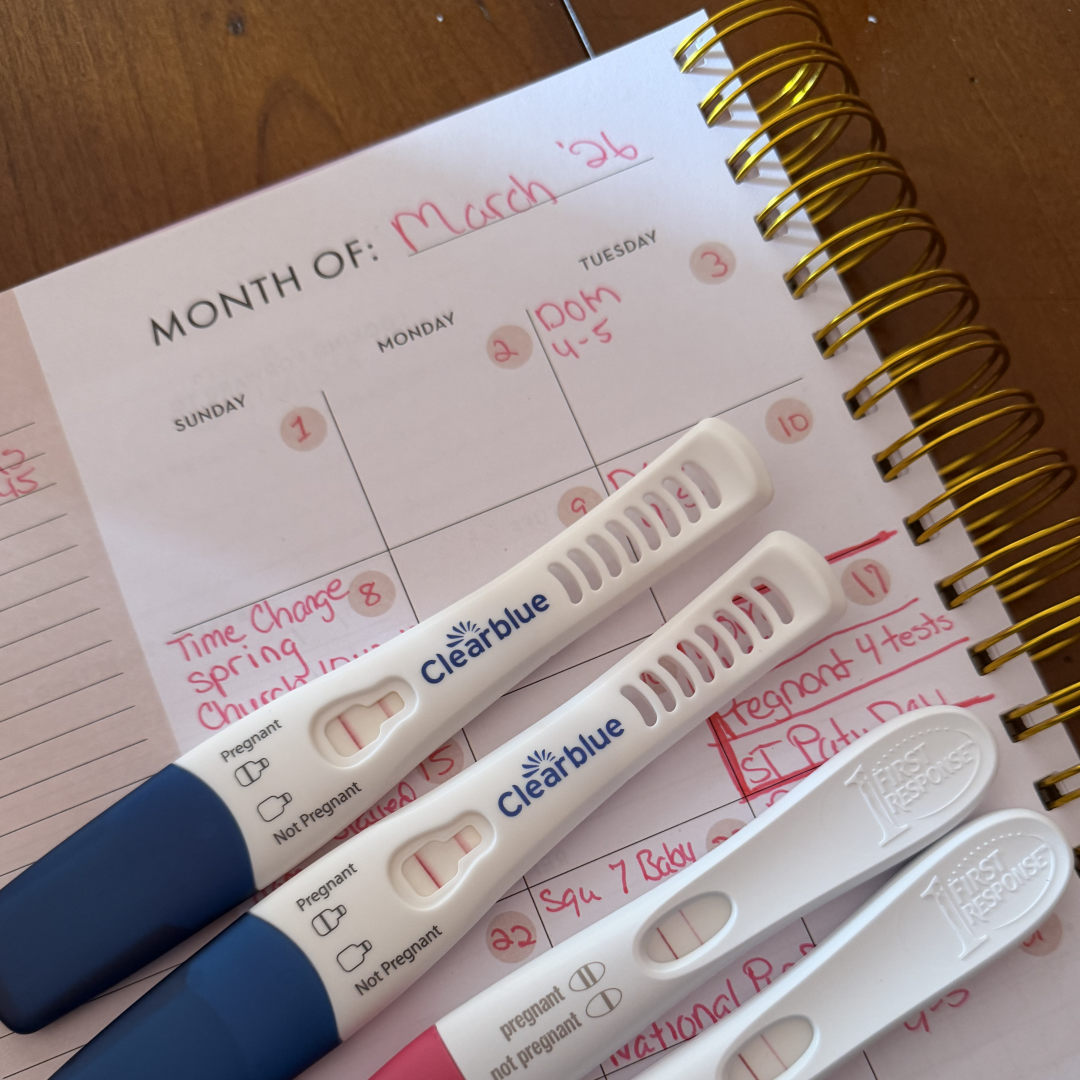 March '26
MONTH OF:
TUESDAY
3
MONDAY
2
DOM
4-5
SUNDAY
1
10
9
Time Change
spring
Church
8
17
Pregnant 4 tests
ST Paty Day
15
Clearblue
Pregnant
Not Pregnant
Clearblue
Pregnant
Not Pregnant
Squ 7 Baby
22
National
4-5
1
FIRST
RESPONSE
pregnant
not pregnant
1
FIRST
RESPONSE
45